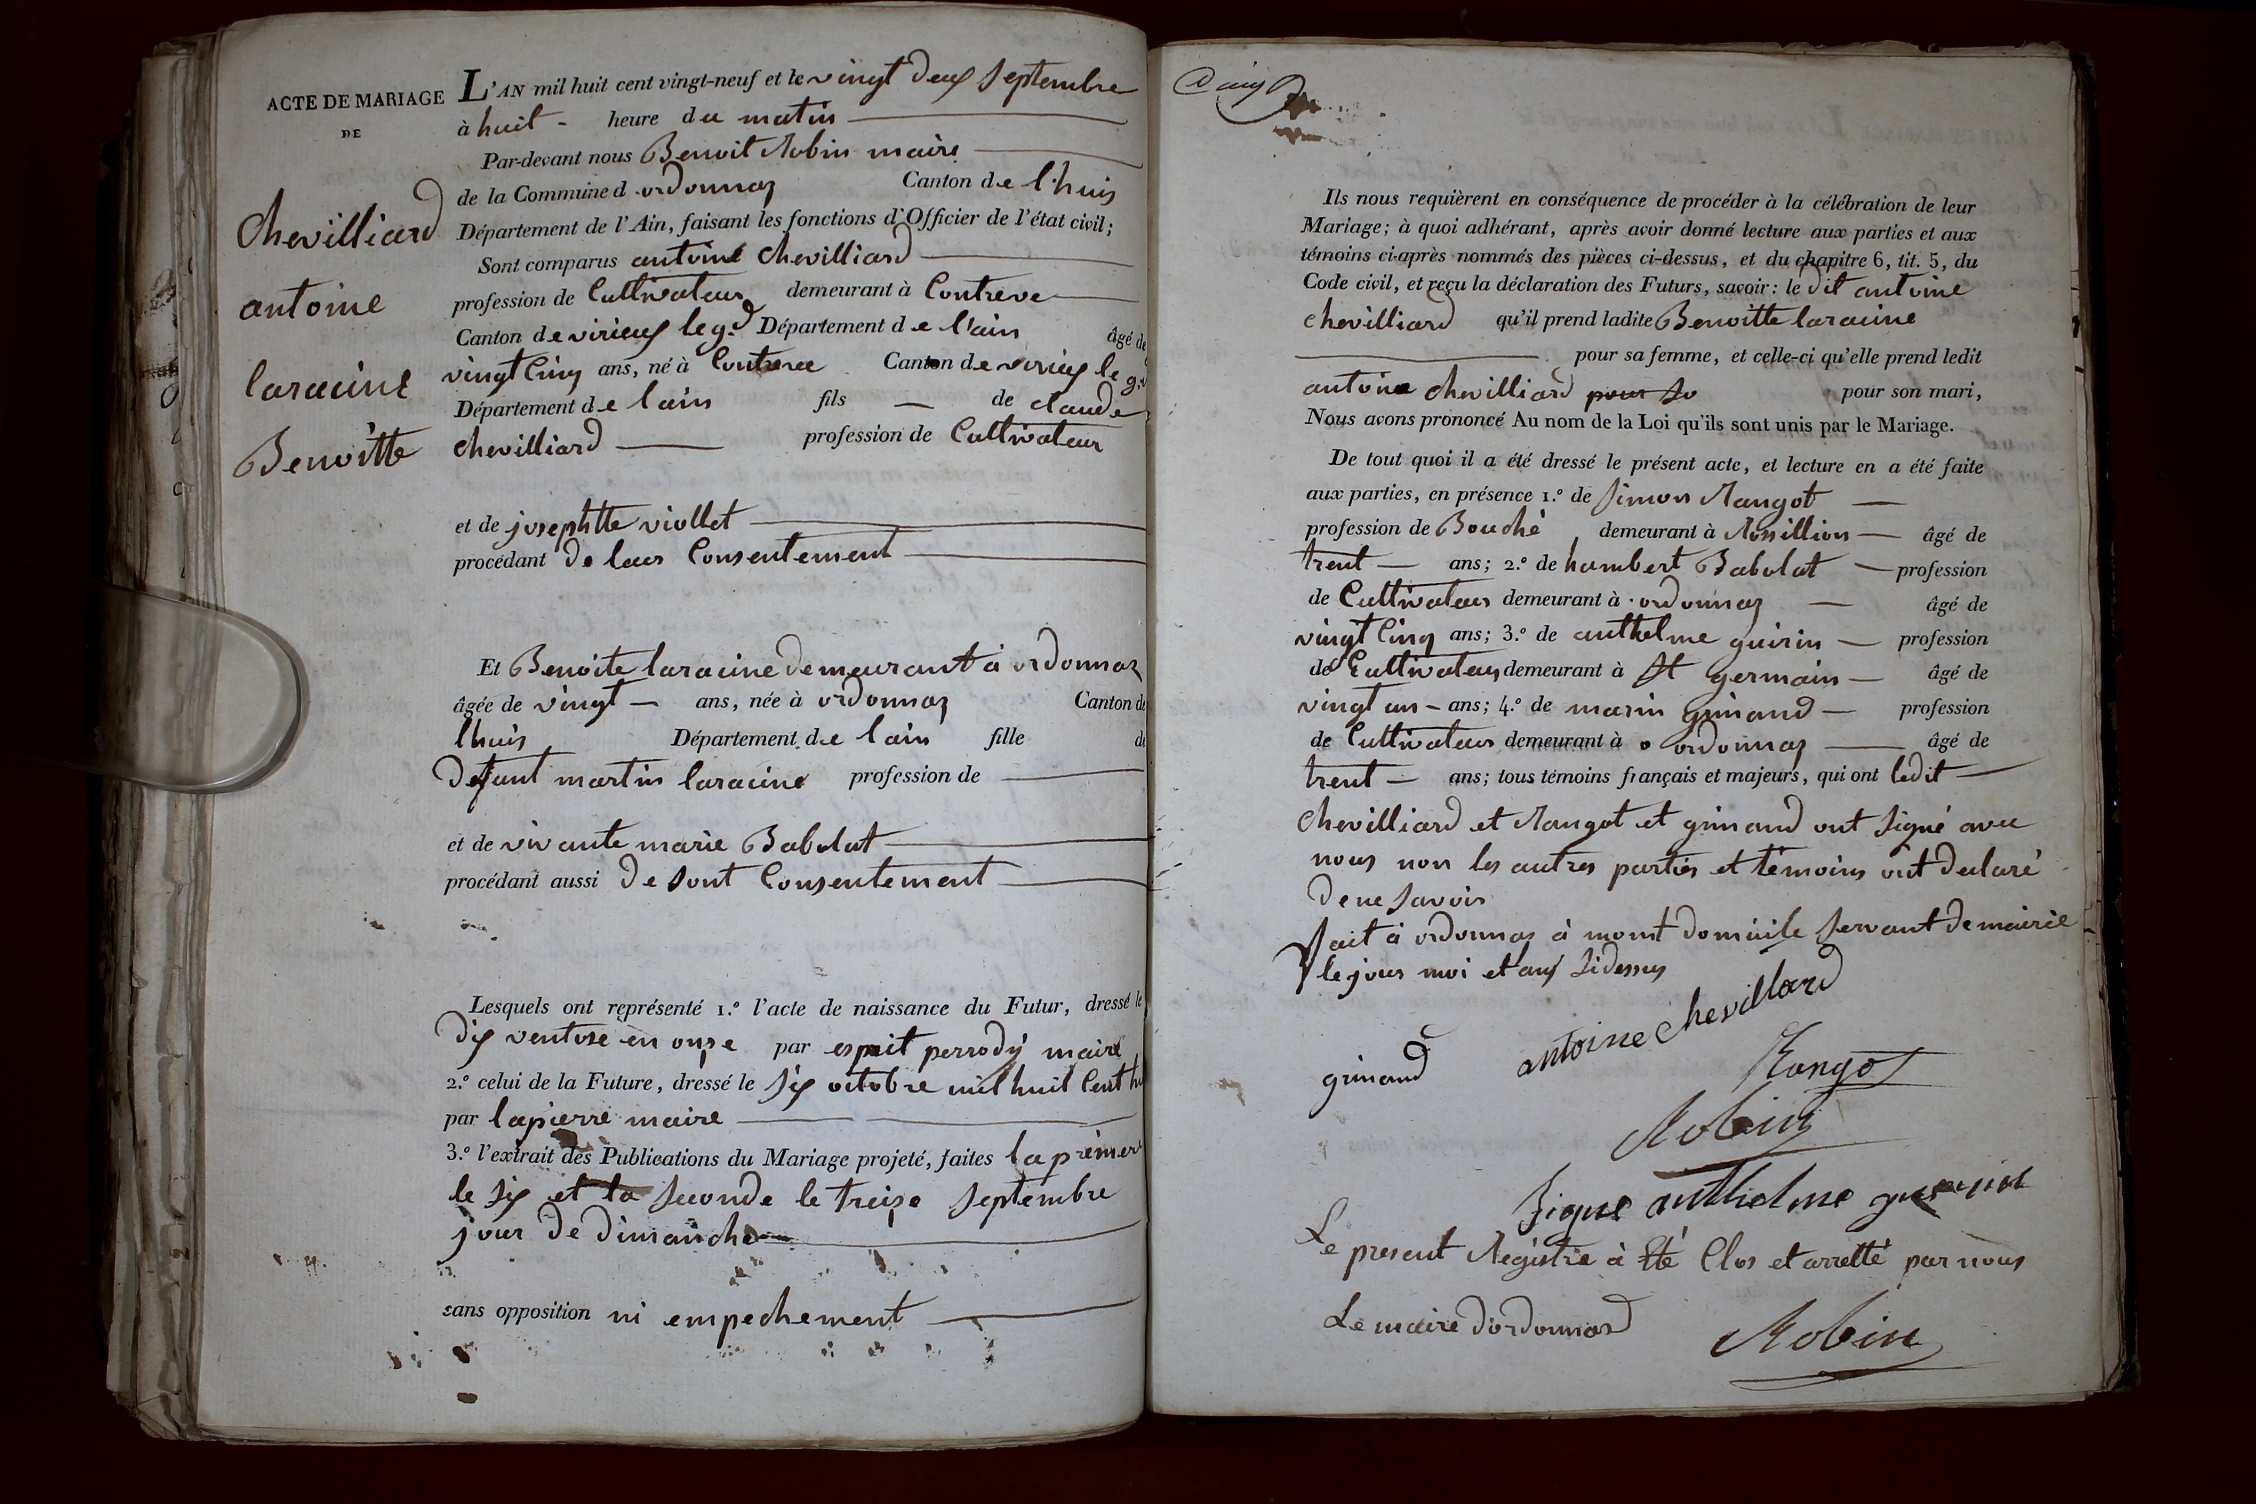 ACTE DE MARIAGE
DE
chevilliard
antoine
laracine
Benoitte
L'AN mil huit cent vingt-neuf et le vingt deux septembre
à huit - heure du matin
Par-devant nous Benoit Robin maire
de la Commune d ordonnaz Canton de l'huis
Département de l'Ain, faisant les fonctions d'Officier de l'état civil;
Sont comparus antoine chevilliard
profession de Cultivateur demeurant à Contreve
Canton de virieux le g.d Département de l'ain âgé de
vingt Cinq ans, né à Contreve Canton de virieux le g.d
Département de lain fils — de claude
chevilliard profession de Cultivateur
et de josephtte viollet
procédant de leur Consentement
Et Benoite laracine demeurant à ordonnaz
âgée de vingt — ans, née à ordonnaz Canton de
lhuis Département de lain fille de
defunt martin laracine profession de
et de vivante marie Babolat
procédant aussi de sont Consentement
Lesquels ont représenté 1.º l'acte de naissance du Futur, dressé le
dix ventose en onze par esprit perrody maire
2.º celui de la Future, dressé le six octobre mil huit Cent
par lapierre maire
3.º l'extrait des Publications du Mariage projeté, faites la premier
le six et la seconde le treize septembre
jour de dimanche
sans opposition ni empechement
Ils nous requièrent en conséquence de procéder à la célébration de leur
Mariage; à quoi adhérant, après avoir donné lecture aux parties et aux
témoins ci-après nommés des pièces ci-dessus, et du chapitre 6, tit. 5, du
Code civil, et reçu la déclaration des Futurs, savoir: le dit antoine
chevilliard qu'il prend ladite Benoitte laracine
pour sa femme, et celle-ci qu'elle prend ledit
antoine chevilliard pour so pour son mari,
Nous avons prononcé Au nom de la Loi qu'ils sont unis par le Mariage.
De tout quoi il a été dressé le présent acte, et lecture en a été faite
aux parties, en présence 1.º de simon Rangot —
profession de Bouché demeurant à Rossillion — âgé de
trent — ans; 2.º de humbert Babolat — profession
de Cultivateur demeurant à ordonnaz — âgé de
vingt Cinq ans; 3.º de anthelme guirin — profession
de Cultivateur demeurant à st germain — âgé de
vingt un - ans; 4.º de marin grinand — profession
de Cultivateur demeurant à o ordonnaz — âgé de
trent — ans; tous témoins français et majeurs, qui ont ledit —
chevilliard et Rangot et grinand ont signé avec
nous non les autres parties et témoins ont declaré
de ne savoir
fait à ordonnaz à mont domicile servant de mairie
le jour moi et anx sidessus
grinand antoine chevillard
Rangot
Robin
signe anthelme guerin
Le present Registre à Eté Clos et arretté par nous
Le maire d'ordonnaz
Robin